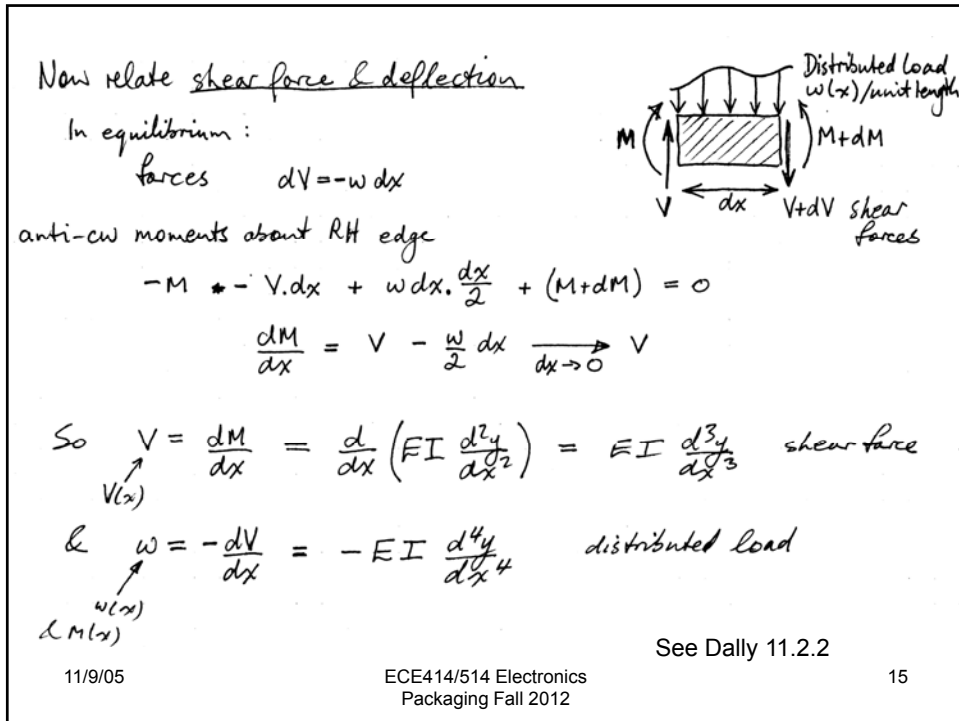 Now relate shear force & deflection
Distributed Load
w(x)/unit length
In equilibrium :
forces dV = -w dx
M
M+dM
V
dx
V+dV shear
forces
anti-cw moments about RH edge
-M - V.dx + w dx. dx/2 + (M+dM) = 0
dM/dx = V - w/2 dx →(dx→0) V
So V = dM/dx = d/dx (EI d²y/dx²) = EI d³y/dx³ shear force
V(x)
& w = -dV/dx = -EI d⁴y/dx⁴ distributed load
w(x)
& M(x)
See Dally 11.2.2
11/9/05
ECE414/514 Electronics
Packaging Fall 2012
15